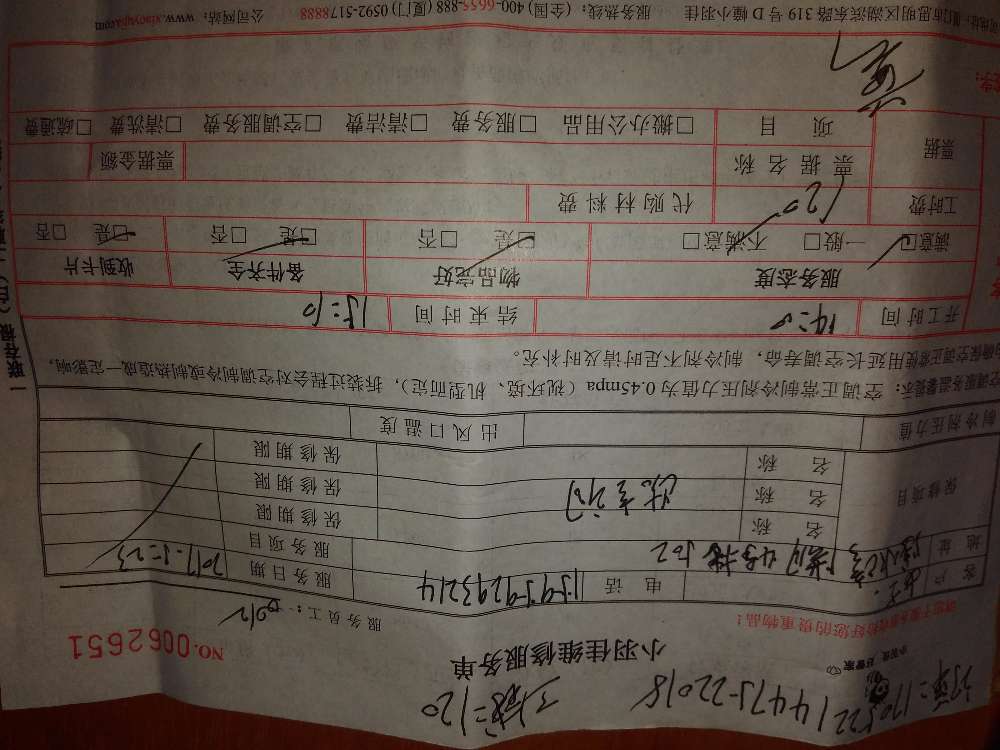 170522144715-22018
工费=120
小羽佳维修服务单
NO.0062651
请您于服务前收拾好您的贵重物品！
服务员工：
客户
电话 13959293214
服务日期 2017-5-23
地址
服务项目
保修项目
名称
保修期限
名称
保修期限
名称
保修期限
制冷剂压力值
出风口温度
空调服务温馨提示：空调正常制冷剂压力值为0.45mpa（视环境、机型而定），拆装过程会对空调制冷或制热造成一定影响，
为确保空调正常使用延长空调寿命，制冷剂不足时请及时补充。
开工时间 14:0
结束时间 15:10
服务态度
物品完好
备件齐全
收到卡片
满意□ 一般□ 不满意□
□是 □否
□是 □否
□是 □否
工时费 120
代购材料费
票据
票据名称
票据金额
项目
□搬办公用品 □服务费 □清洁费 □空调服务费 □清洗费 □疏通费
思明区湖滨东路319号D幢小羽佳 服务热线：(全国) 400-6655-888 (厦门) 0592-5178888 公司网站：www.xiaoyujia.com